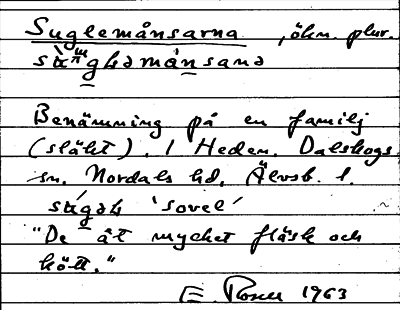 Suglemånsarna, ökn. plur.
sùghəmànsanə
Benämning på en familj
(släkt). I Heden. Dalskogs
sn. Nordals hd. Älvsb. l.
súgəh 'sovel'
"De åt mycket fläsk och
kött."
E. Rosen 1963